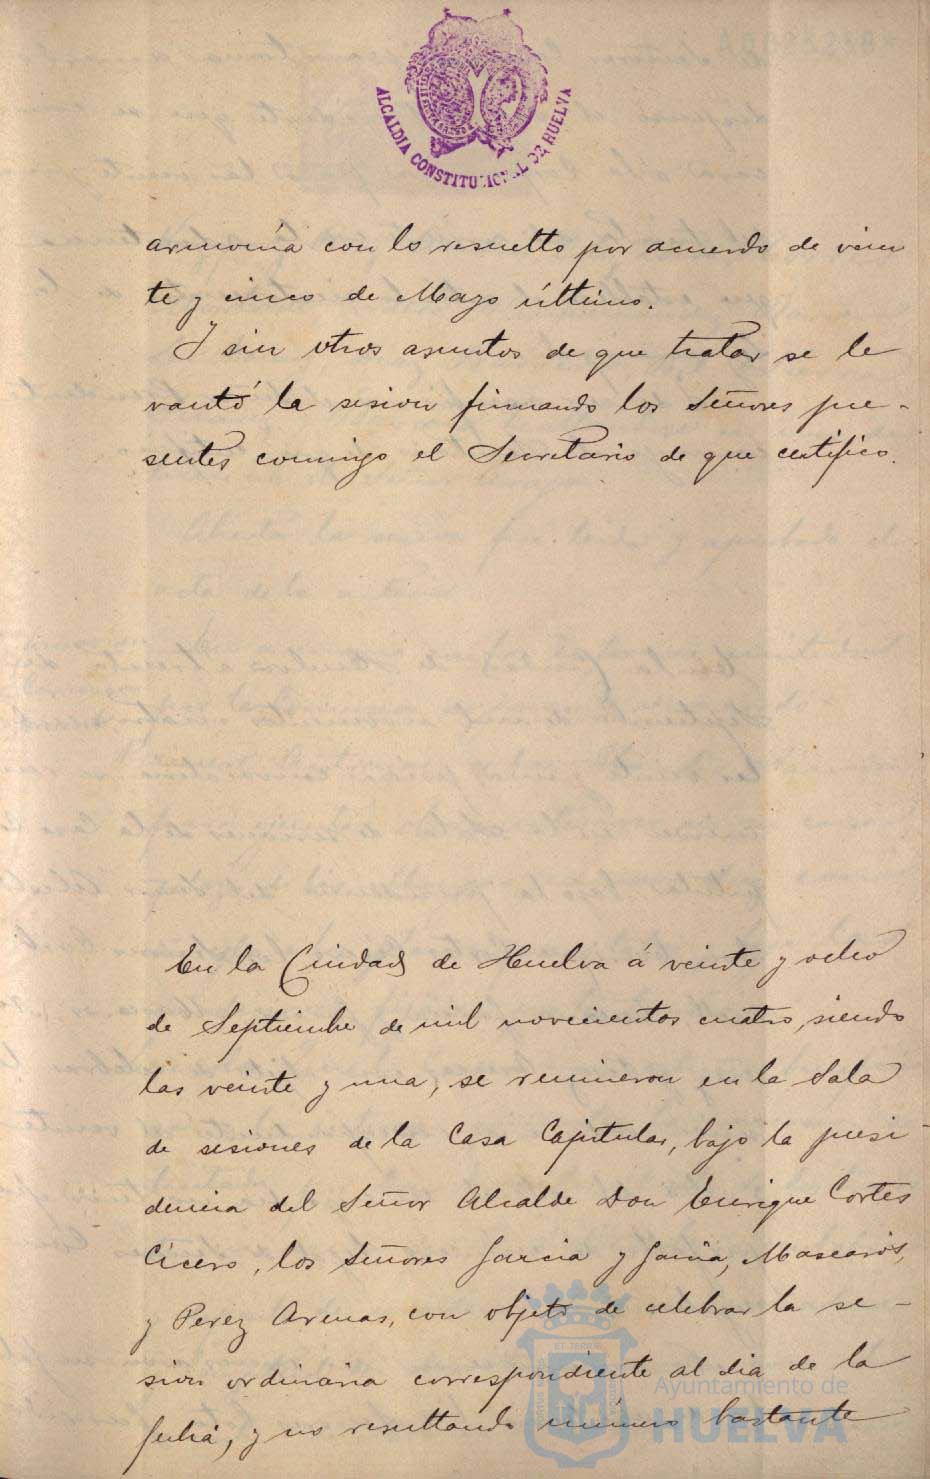 ALCALDIA CONSTITUCIONAL DE HUELVA
armonía con lo resuelto por acuerdo de vein
te y cinco de Mayo último.
Y sin otros asuntos de que tratar se le
vantó la sesion firmando los Señores pre-
sentes conmigo el Secretario de que certifico.
En la Ciudad de Huelva á veinte y ocho
de Septiembre de mil novecientos cuatro, siendo
las veinte y una, se reunieron en la Sala
de sesiones de la Casa Capitular, bajo la presi-
dencia del Señor Alcalde Don Enrique Cortes
Cícero, los Señores Garcia y Mascarós,
y Perez Arenas, con objeto de celebrar la se-
sion ordinaria correspondiente al dia de la
fecha, y no resultando número bastante
Ayuntamiento de
HUELVA